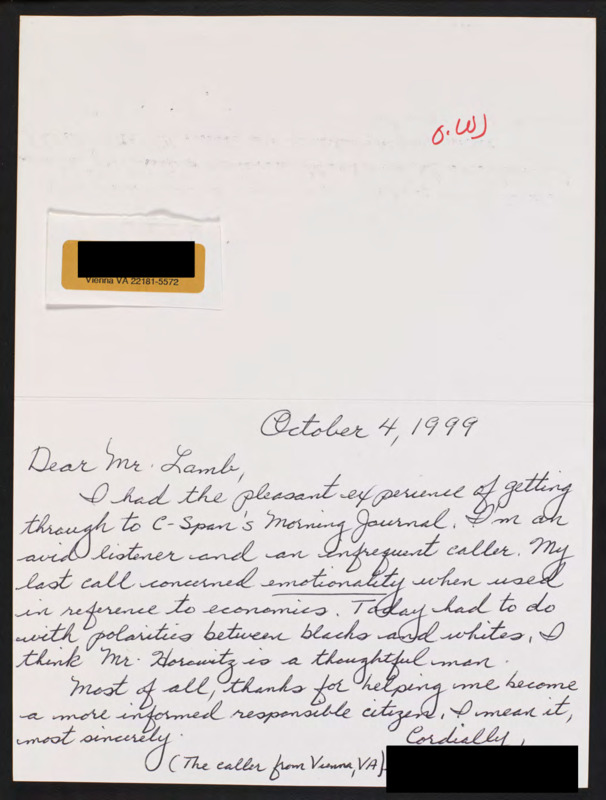 O.WJ
Vienna VA 22181-5572
October 4, 1999
Dear Mr. Lamb,
I had the pleasant experience of getting
through to C-Span's Morning Journal. I'm an
avid listener and an infrequent caller. My
last call concerned emotionality when used
in reference to economics. Today had to do
with polarities between blacks and whites. I
think Mr. Horowitz is a thoughtful man.
Most of all, thanks for helping me become
a more informed responsible citizen. I mean it,
most sincerely.
Cordially,
(The caller from Vienna, VA)